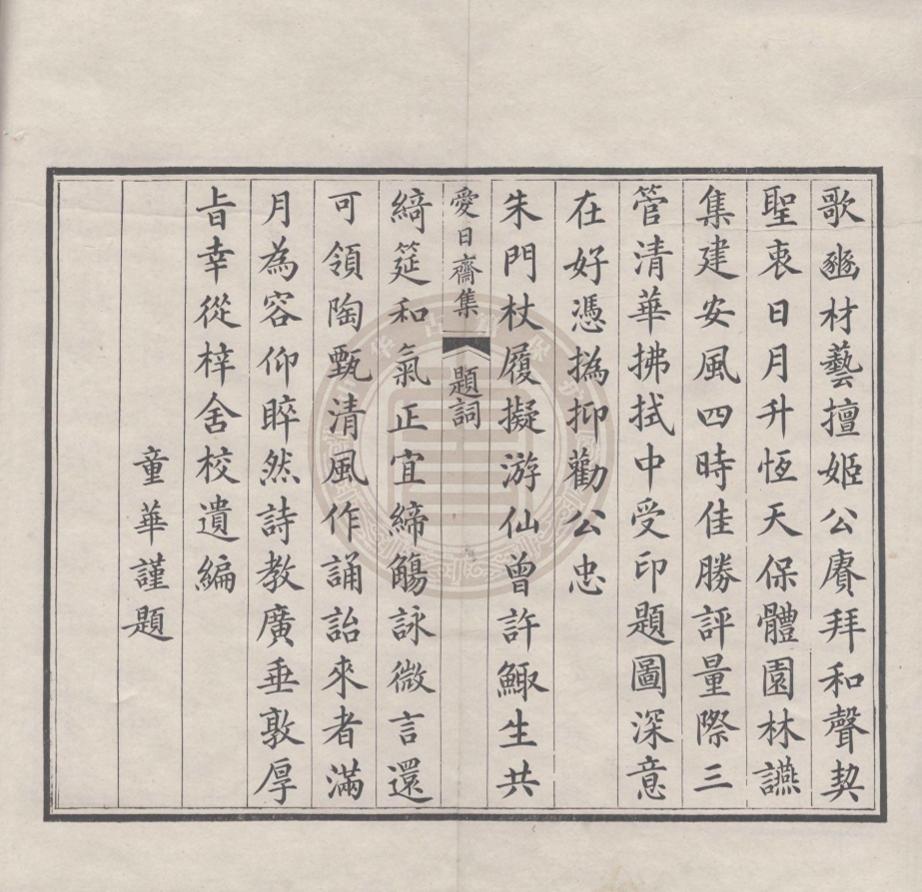 歌豳材藝擅姬公賡拜和聲契
聖衷日月升恆天保體園林讌
集建安風四時佳勝評量際三
管清華拂拭中受印題圖深意
在好憑撝抑勸公忠
朱門杖履擬游仙曾許鯫生共
愛日齋集 題詞
綺筵和氣正宜締觴詠微言還
可領陶甄清風作誦詒來者滿
月為容仰睟然詩教廣垂敦厚
旨幸從梓舍校遺編
童華謹題